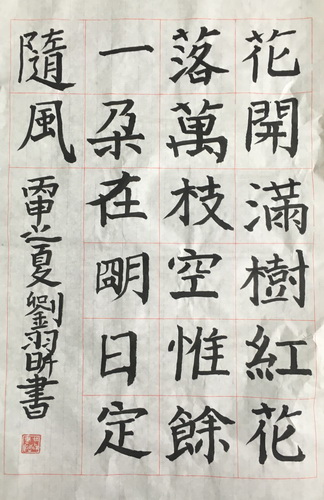 花開滿樹紅花
落萬枝空惟餘
一朵在明日定
隨風
丙申之夏劉羽昕書